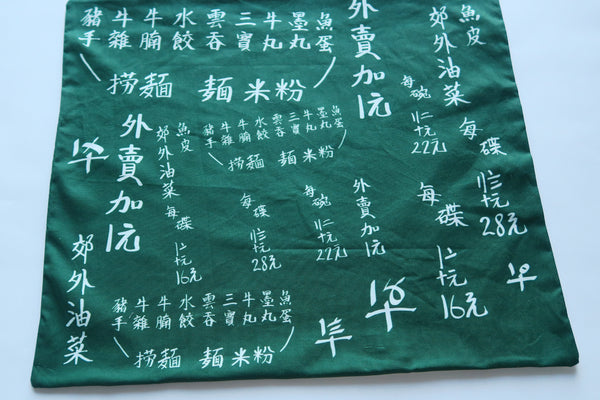 魚皮
郊外油菜
每碟
28元
每碟
16元
外賣加〡元
每碗
22元
魚蛋
墨丸
牛丸
三寶
雲吞
水餃
牛腩
牛雜
豬手
撈麵 麵 米粉
魚蛋
墨丸
牛丸
三寶
雲吞
水餃
牛腩
牛雜
豬手
撈麵 麵 米粉
外賣加〡元
每碗
22元
每碟
28元
魚皮
郊外油菜
每碟
16元
外賣加〡元
郊外油菜
魚蛋
墨丸
牛丸
三寶
雲吞
水餃
牛腩
牛雜
豬手
撈麵 麵 米粉